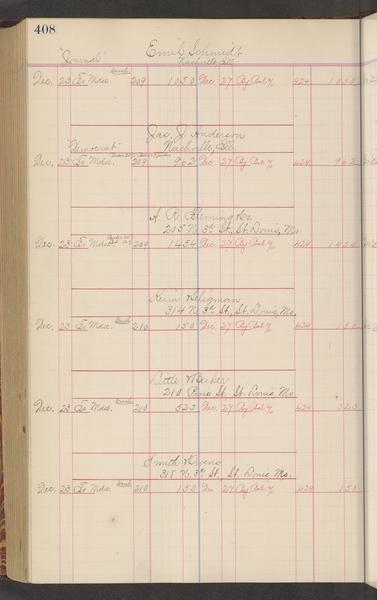 408
"Journal" Emil Schmidt
Nashville, Ill.
Dec. 23 To Mdse. 209 1050 Dec 27 By Bal 424 1050
Jas. J. Anderson
"Democrat" Nashville, Ill.
Dec. 23 To Mdse. 209 962 Dec 27 By Bal 424 962
A. R. Fleming & Co.
205 N. 3rd St., St. Louis, Mo.
Dec. 23 To Mdse. 209 1454 Dec 27 By Bal 424 1454
Seligman
314 N. 3rd St., St. Louis, Mo.
Dec. 23 To Mdse. 210 150 Dec 27 By Bal 424 150
Little & Becker
210 Pine St., St. Louis, Mo.
Dec. 23 To Mdse. 210 323 Dec 27 By Bal 424 323
Smith & Owens
318 N. 3rd St., St. Louis, Mo.
Dec. 23 To Mdse. 210 150 Dec 27 By Bal 424 150